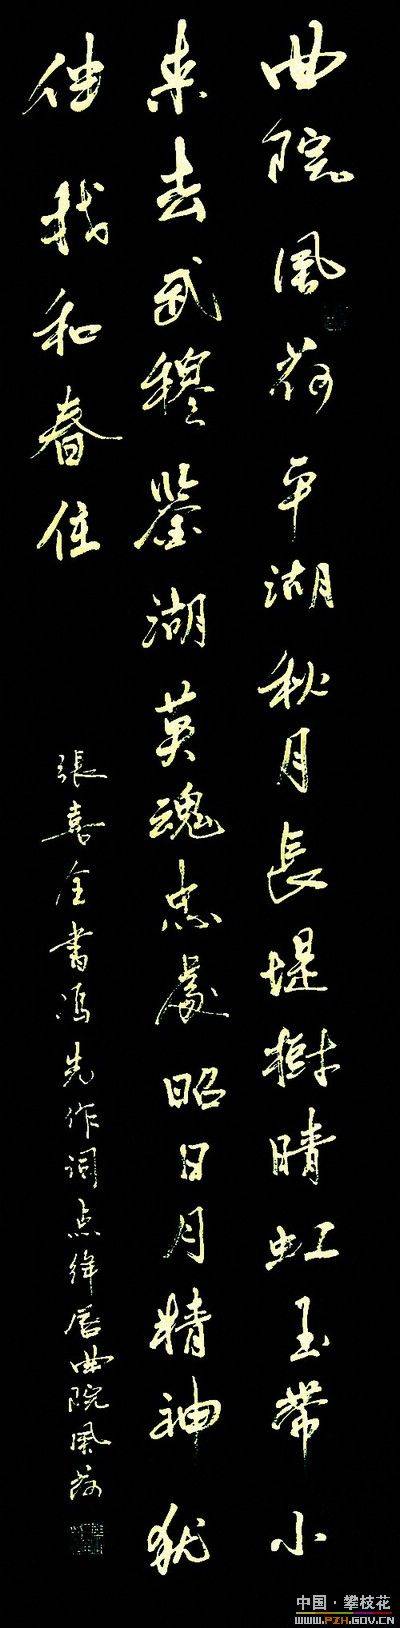 曲院風荷平湖秋月長堤樹晴虹玉帶小
来去武穆鑒湖英魂忠處昭日月精神猶
伴我和春住
張喜全書馮先作词点绛唇曲院風荷
中国·攀枝花
WWW.PZH.GOV.CN